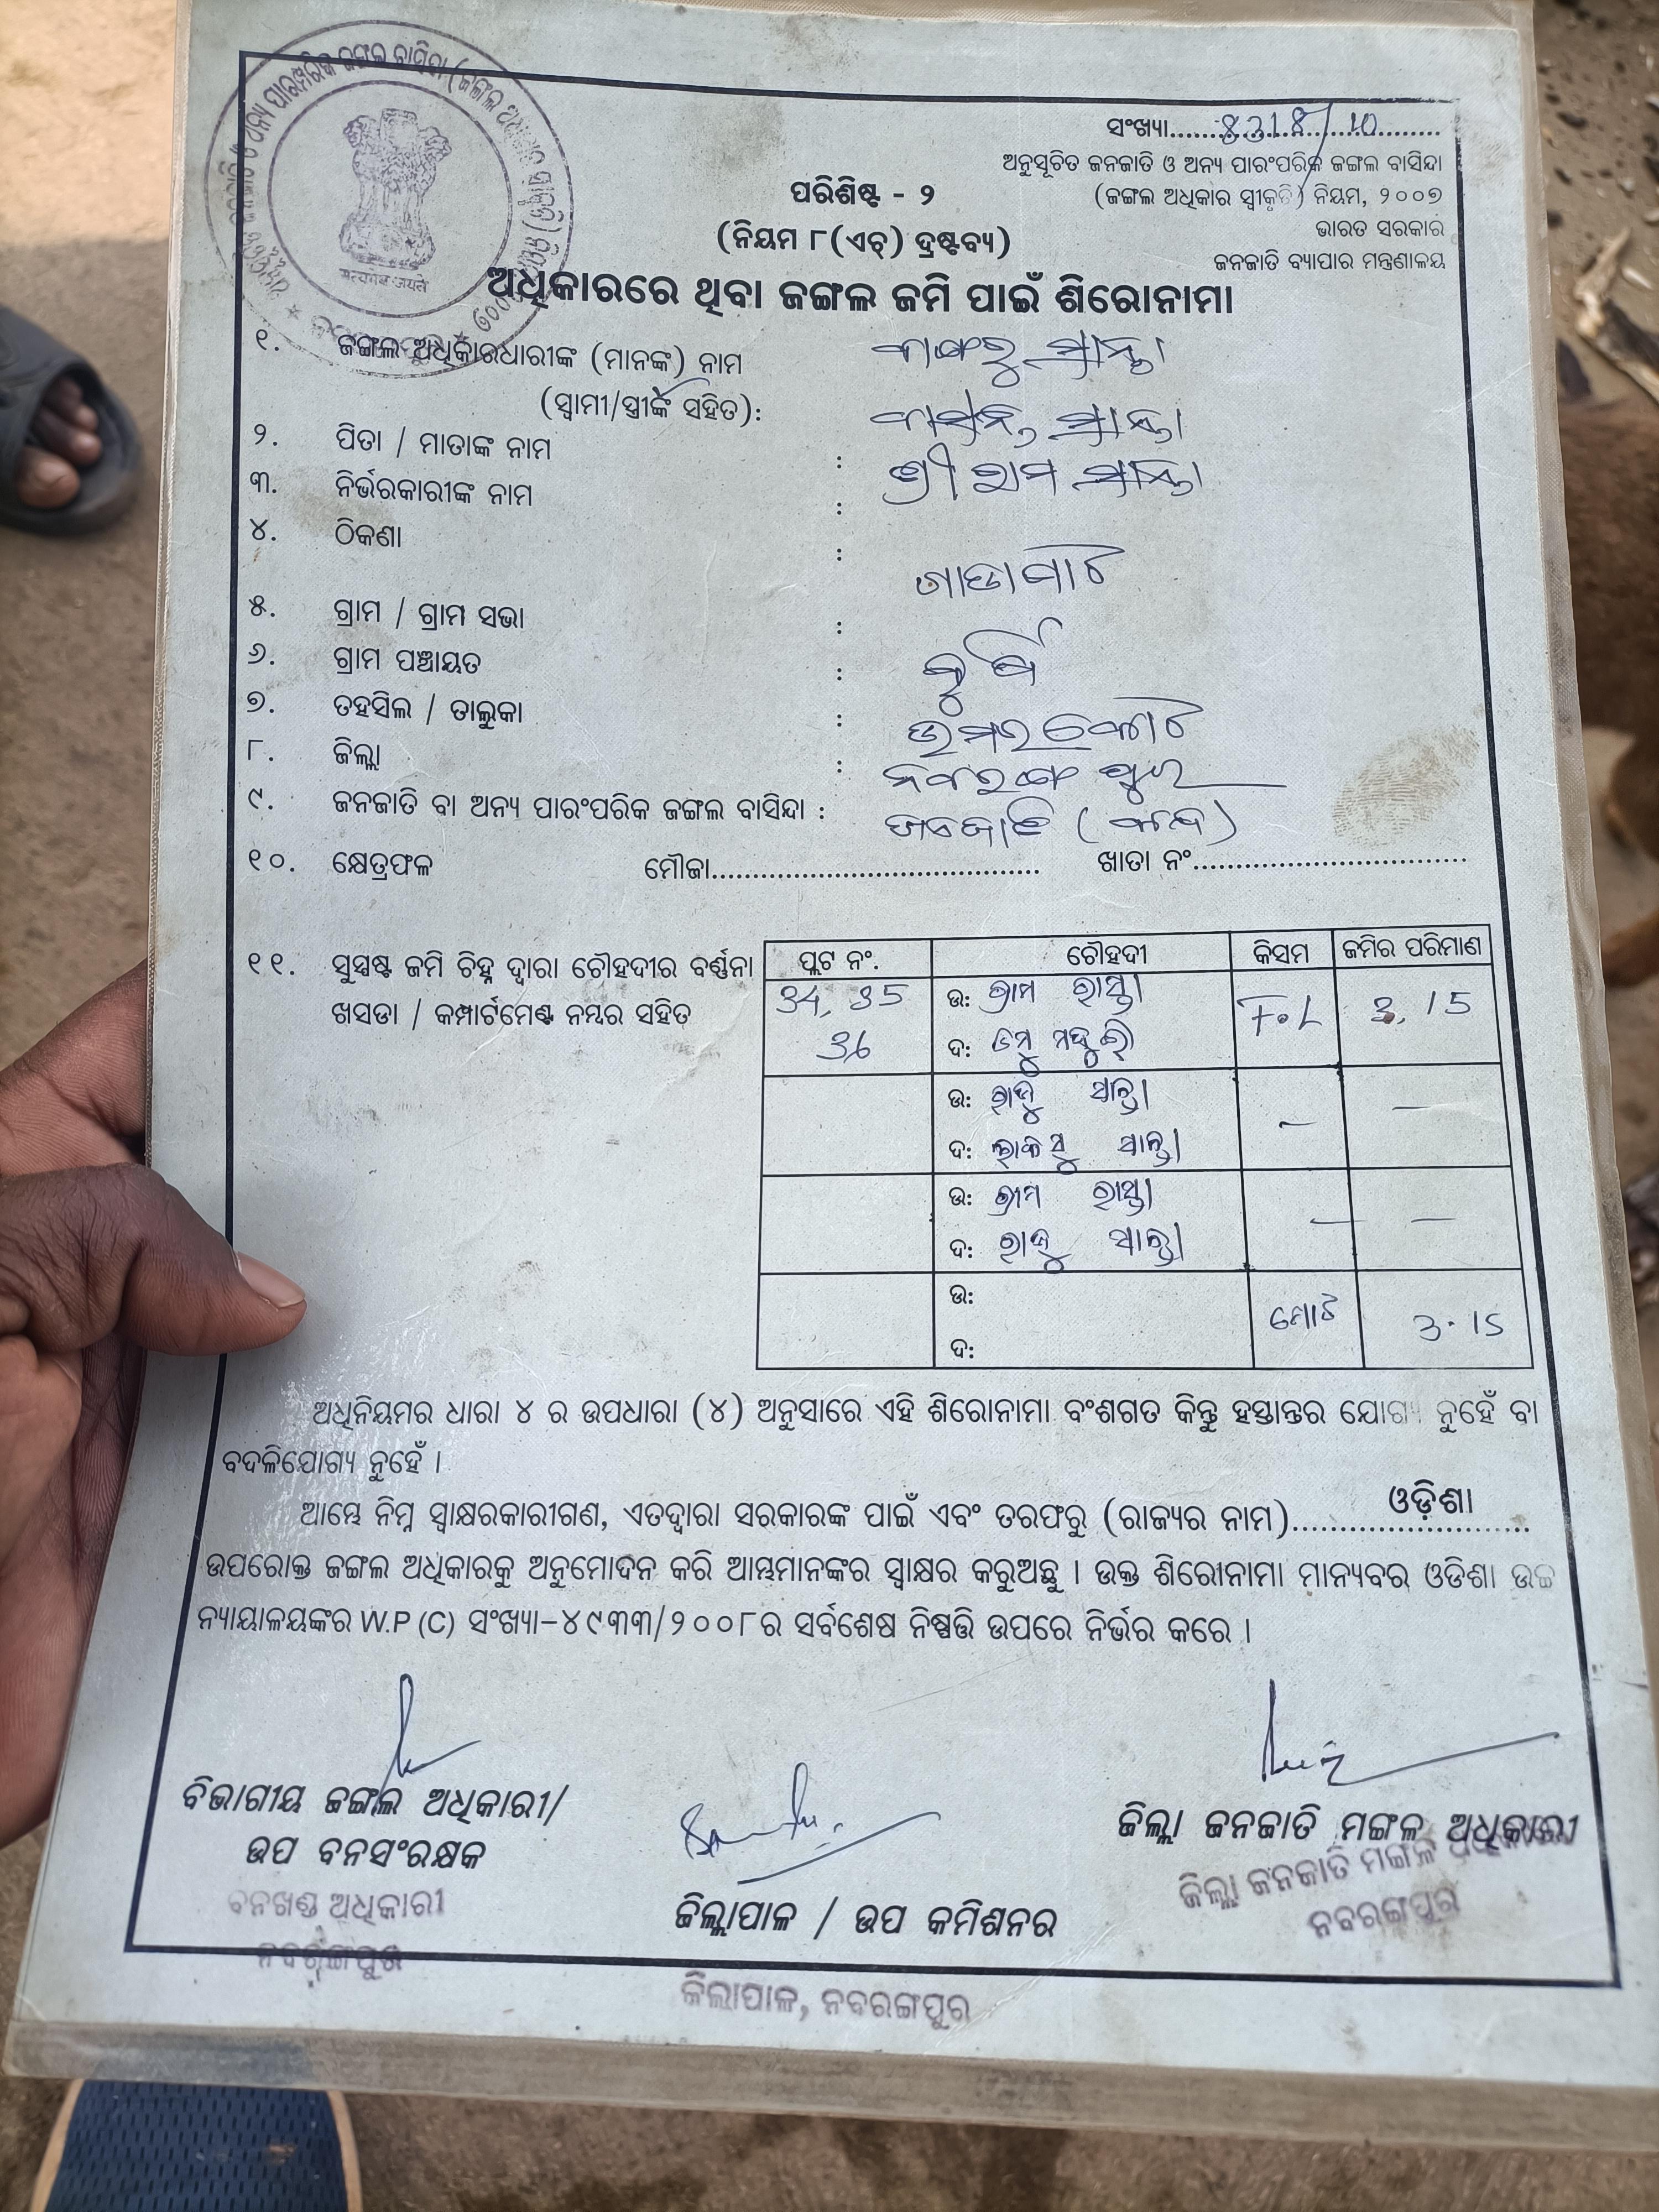 ସଂଖ୍ୟା........8318/10........
ଅନୁସୂଚିତ ଜନଜାତି ଓ ଅନ୍ୟ ପାରଂପରିକ ଜଙ୍ଗଲ ବାସିନ୍ଦା
(ଜଙ୍ଗଲ ଅଧିକାର ସ୍ୱୀକୃତି) ନିୟମ, ୨୦୦୭
ଭାରତ ସରକାର
ଜନଜାତି ବ୍ୟାପାର ମନ୍ତ୍ରଣାଳୟ
ପରିଶିଷ୍ଟ - ୨
(ନିୟମ ୮(ଏଚ୍) ଦ୍ରଷ୍ଟବ୍ୟ)
ଅଧିକାରରେ ଥିବା ଜଙ୍ଗଲ ଜମି ପାଇଁ ଶିରୋନାମା
୧. ଜଙ୍ଗଲ ଅଧିକାରଧାରୀଙ୍କ (ମାନଙ୍କ) ନାମ
(ସ୍ୱାମୀ/ସ୍ତ୍ରୀଙ୍କ ସହିତ):
୨. ପିତା / ମାତାଙ୍କ ନାମ :
୩. ନିର୍ଭରକାରୀଙ୍କ ନାମ : ଶ୍ରୀରାମ
୪. ଠିକଣା :
୫. ଗ୍ରାମ / ଗ୍ରାମ ସଭା :
୬. ଗ୍ରାମ ପଞ୍ଚାୟତ :
୭. ତହସିଲ / ତାଲୁକା : ଉମରକୋଟ
୮. ଜିଲ୍ଲା : ନବରଙ୍ଗପୁର
୯. ଜନଜାତି ବା ଅନ୍ୟ ପାରଂପରିକ ଜଙ୍ଗଲ ବାସିନ୍ଦା :
୧୦. କ୍ଷେତ୍ରଫଳ ମୌଜା........................................ ଖାତା ନଂ.................................
୧୧. ସୁସ୍ପଷ୍ଟ ଜମି ଚିହ୍ନ ଦ୍ୱାରା ଚୌହଦୀର ବର୍ଣ୍ଣନା
ଖସଡା / କମ୍ପାର୍ଟମେଣ୍ଟ ନମ୍ବର ସହିତ
ପ୍ଲଟ ନଂ. ଚୌହଦୀ କିସମ ଜମିର ପରିମାଣ
34, 35 ଉ: ଗ୍ରାମ ରାସ୍ତା F.L 3.15
36 ଦ:
ଉ: –  –
ଦ:
ଉ: ଗ୍ରାମ ରାସ୍ତା –  –
ଦ:
ଉ: ମୋଟ 3.15
ଦ:
ଅଧିନିୟମର ଧାରା ୪ ର ଉପଧାରା (୪) ଅନୁସାରେ ଏହି ଶିରୋନାମା ବଂଶଗତ କିନ୍ତୁ ହସ୍ତାନ୍ତର ଯୋଗ୍ୟ ନୁହେଁ ବା
ବଦଳିଯୋଗ୍ୟ ନୁହେଁ ।
ଆମ୍ଭେ ନିମ୍ନ ସ୍ୱାକ୍ଷରକାରୀଗଣ, ଏତଦ୍ୱାରା ସରକାରଙ୍କ ପାଇଁ ଏବଂ ତରଫରୁ (ରାଜ୍ୟର ନାମ)......ଓଡ଼ିଶା......
ଉପରୋକ୍ତ ଜଙ୍ଗଲ ଅଧିକାରକୁ ଅନୁମୋଦନ କରି ଆମ୍ଭମାନଙ୍କର ସ୍ୱାକ୍ଷର କରୁଅଛୁ । ଉକ୍ତ ଶିରୋନାମା ମାନ୍ୟବର ଓଡିଶା ଉଚ୍ଚ
ନ୍ୟାୟାଳୟଙ୍କର W.P (C) ସଂଖ୍ୟା-୪୯୩୩/୨୦୦୮ର ସର୍ବଶେଷ ନିଷ୍ପତ୍ତି ଉପରେ ନିର୍ଭର କରେ ।
ବିଭାଗୀୟ ଜଙ୍ଗଲ ଅଧିକାରୀ/
ଉପ ବନସଂରକ୍ଷକ
ବନଖଣ୍ଡ ଅଧିକାରୀ
ନବରଙ୍ଗପୁର
ଜିଲ୍ଲାପାଳ / ଉପ କମିଶନର
ଜିଲାପାଳ, ନବରଙ୍ଗପୁର
ଜିଲ୍ଲା ଜନଜାତି ମଙ୍ଗଳ ଅଧିକାରୀ
ଜିଲ୍ଲା ଜନଜାତି ମଙ୍ଗଳ ଅଧିକାରୀ
ନବରଙ୍ଗପୁର